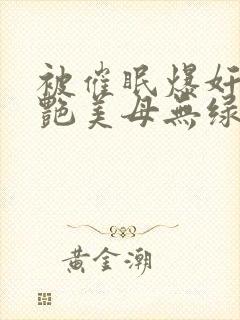 被催眠爆奸
艷美母無绿
黄金潮